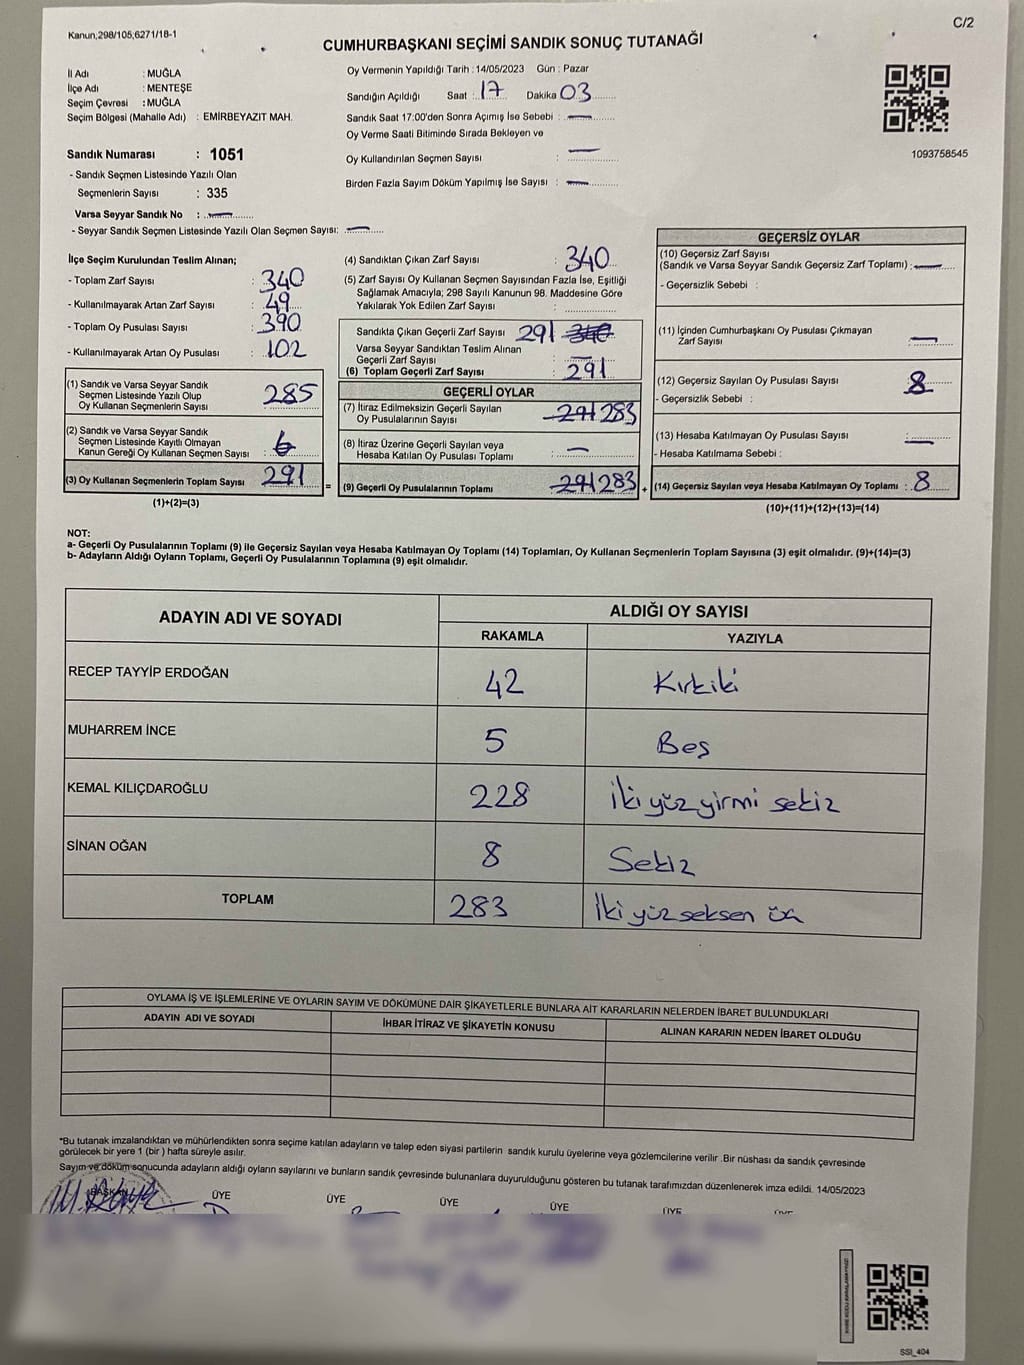 Kanun;298/105,6271/18-1
C/2
CUMHURBAŞKANI SEÇİMİ SANDIK SONUÇ TUTANAĞI
İl Adı : MUĞLA
İlçe Adı : MENTEŞE
Seçim Çevresi : MUĞLA
Seçim Bölgesi (Mahalle Adı) : EMİRBEYAZIT MAH.
Sandık Numarası : 1051
- Sandık Seçmen Listesinde Yazılı Olan
Seçmenlerin Sayısı : 335
Varsa Seyyar Sandık No : —
- Seyyar Sandık Seçmen Listesinde Yazılı Olan Seçmen Sayısı: —
Oy Vermenin Yapıldığı Tarih : 14/05/2023 Gün : Pazar
Sandığın Açıldığı Saat : 17 Dakika 03
Sandık Saat 17:00'den Sonra Açımış İse Sebebi : —
Oy Verme Saati Bitiminde Sırada Bekleyen ve
Oy Kullandırılan Seçmen Sayısı : —
Birden Fazla Sayım Döküm Yapılmış İse Sayısı : —
1093758545
İlçe Seçim Kurulundan Teslim Alınan;
- Toplam Zarf Sayısı : 340
- Kullanılmayarak Artan Zarf Sayısı : 49
- Toplam Oy Pusulası Sayısı : 390
- Kullanılmayarak Artan Oy Pusulası : 102
(1) Sandık ve Varsa Seyyar Sandık
Seçmen Listesinde Yazılı Olup
Oy Kullanan Seçmenlerin Sayısı : 285
(2) Sandık ve Varsa Seyyar Sandık
Seçmen Listesinde Kayıtlı Olmayan
Kanun Gereği Oy Kullanan Seçmen Sayısı : 6
(3) Oy Kullanan Seçmenlerin Toplam Sayısı 291
(1)+(2)=(3)
(4) Sandıktan Çıkan Zarf Sayısı : 340
(5) Zarf Sayısı Oy Kullanan Seçmen Sayısından Fazla İse, Eşitliği
Sağlamak Amacıyla; 298 Sayılı Kanunun 98. Maddesine Göre
Yakılarak Yok Edilen Zarf Sayısı :
Sandıkta Çıkan Geçerli Zarf Sayısı 291 340
Varsa Seyyar Sandıktan Teslim Alınan
Geçerli Zarf Sayısı : —
(6) Toplam Geçerli Zarf Sayısı : 291
=
GEÇERLİ OYLAR
(7) İtiraz Edilmeksizin Geçerli Sayılan
Oy Pusulalarının Sayısı : 291 283
(8) İtiraz Üzerine Geçerli Sayılan veya
Hesaba Katılan Oy Pusulası Toplamı : —
(9) Geçerli Oy Pusulalarının Toplamı 291 283
+
GEÇERSİZ OYLAR
(10) Geçersiz Zarf Sayısı
(Sandık ve Varsa Seyyar Sandık Geçersiz Zarf Toplamı) : —
- Geçersizlik Sebebi :
(11) İçinden Cumhurbaşkanı Oy Pusulası Çıkmayan
Zarf Sayısı : —
(12) Geçersiz Sayılan Oy Pusulası Sayısı : 8
- Geçersizlik Sebebi :
(13) Hesaba Katılmayan Oy Pusulası Sayısı : —
- Hesaba Katılmama Sebebi :
(14) Geçersiz Sayılan veya Hesaba Katılmayan Oy Toplamı : 8
(10)+(11)+(12)+(13)=(14)
NOT:
a- Geçerli Oy Pusulalarının Toplamı (9) ile Geçersiz Sayılan veya Hesaba Katılmayan Oy Toplamı (14) Toplamları, Oy Kullanan Seçmenlerin Toplam Sayısına (3) eşit olmalıdır. (9)+(14)=(3)
b- Adayların Aldığı Oyların Toplamı, Geçerli Oy Pusulalarının Toplamına (9) eşit olmalıdır.
ADAYIN ADI VE SOYADI
ALDIĞI OY SAYISI
RAKAMLA YAZIYLA
RECEP TAYYİP ERDOĞAN 42 Kırkiki
MUHARREM İNCE 5 Beş
KEMAL KILIÇDAROĞLU 228 İki yüz yirmi sekiz
SİNAN OĞAN 8 Sekiz
TOPLAM 283 İki yüz seksen üç
OYLAMA İŞ VE İŞLEMLERİNE VE OYLARIN SAYIM VE DÖKÜMÜNE DAİR ŞİKAYETLERLE BUNLARA AİT KARARLARIN NELERDEN İBARET BULUNDUKLARI
ADAYIN ADI VE SOYADI İHBAR İTİRAZ VE ŞİKAYETİN KONUSU ALINAN KARARIN NEDEN İBARET OLDUĞU
*Bu tutanak imzalandıktan ve mühürlendikten sonra seçime katılan adayların ve talep eden siyasi partilerin sandık kurulu üyelerine veya gözlemcilerine verilir .Bir nüshası da sandık çevresinde
görülecek bir yere 1 (bir ) hafta süreyle asılır.
Sayım ve döküm sonucunda adayların aldığı oyların sayılarını ve bunların sandık çevresinde bulunanlara duyurulduğunu gösteren bu tutanak tarafımızdan düzenlenerek imza edildi. 14/05/2023
BAŞKAN ÜYE ÜYE ÜYE ÜYE ÜYE ÜYE
SSI_404